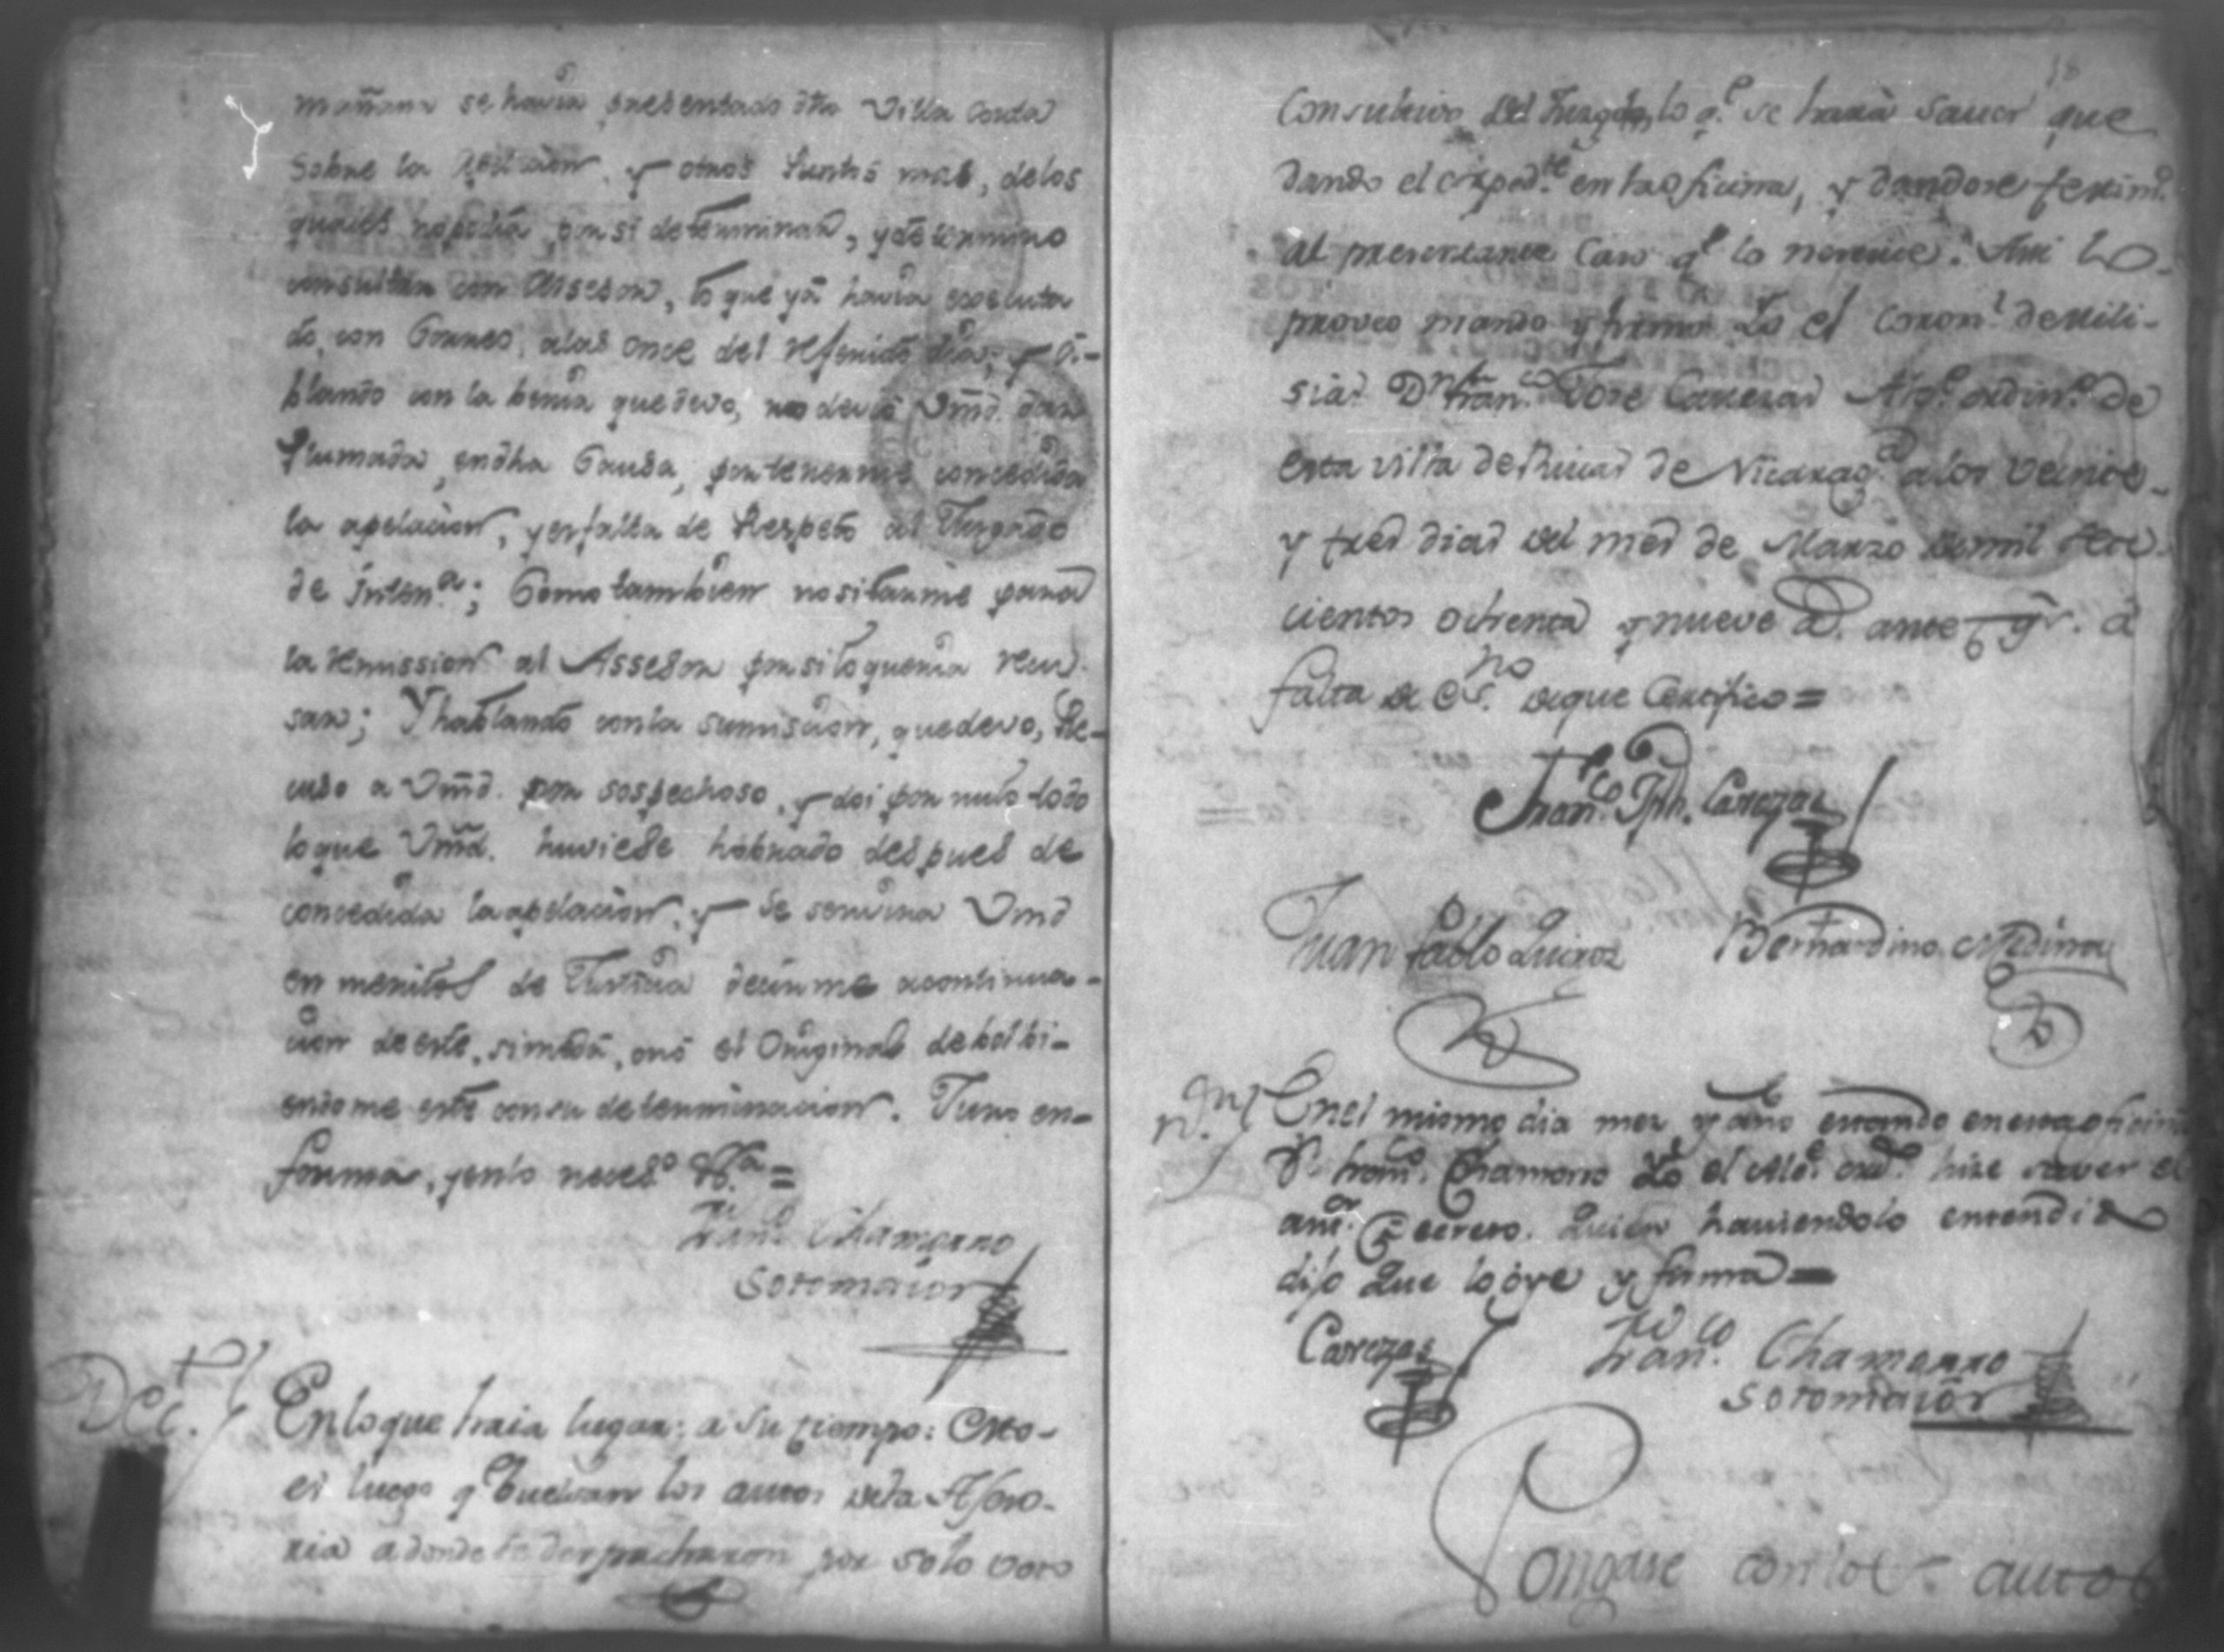 mañana se havia presentado dha Villa Corta
sobre la apelacion, y otros puntos mas, de los
quales no podia por si determinar, y determino
consultar con Assesor, lo que ya havia executa
do, con Correo, a las once del referido dia; y ha-
blando con la benia que devo, no devio Vmd. dar
Plumada, en dha Causa, por tenerme concedida
la apelacion, y es falta de Respeto al Jusgado
de Inten.a; Como tambien no sitarme para
la remission al Assesor por si lo queria recu
sar; Y hablando con la sumision, que devo, Re-
cuso a Vmd. por sospechoso, y doi por nulo todo
lo que Vmd. huviese hobrado despues de
concedida la apelacion, y se servira Vmd
en meritos de Justicia decirme a continua-
cion de este, si me da, o no el Original debolbi-
endome este con su determinacion. Juro en-
forma, y en lo neces.o V.a =
Fran.co Chamorro
Sotomaior
Dct.to
En lo que haia lugar: a su tiempo: Esto-
es luego q.e buelvan los autos de la Aseso-
ria a donde se despacharon por solo voto
18
Consultivo del Juzgdo, lo q.e se hará saver que
dando el exped.te en la oficina, y dandose textim.o
al presentante caso q.e lo necesite. Asi lo
proveo mando y firmo Yo el Coron.l de Mili-
sias D.n Fran.co Jose Carezas Alc.e ordin.o de
esta villa de Rivas de Nicarag.a a los veinte
y tres dias del mes de Marzo de mil sete
cientos ochenta y nueve a.s ante tg.s a
falta de Es.no de que Certifico =
Fran.co Jph. Carezas
Juan Pablo Quiros Bernardino Medina
En el mismo dia mes y año estando en esta oficina
D.n Fran.co Chamorro Yo el Alc.e ord.o hize saver el
ant.or Decreto. Quien haviendolo entendido
dijo Que lo oye y firma =
Carezas Fran.co Chamorro
Sotomaior
Pongase con los autos